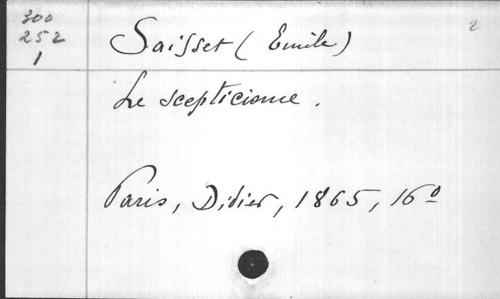 300
252
1
Saisset (Emile)
2
Le scepticisme.
Paris, Didier, 1865, 16º